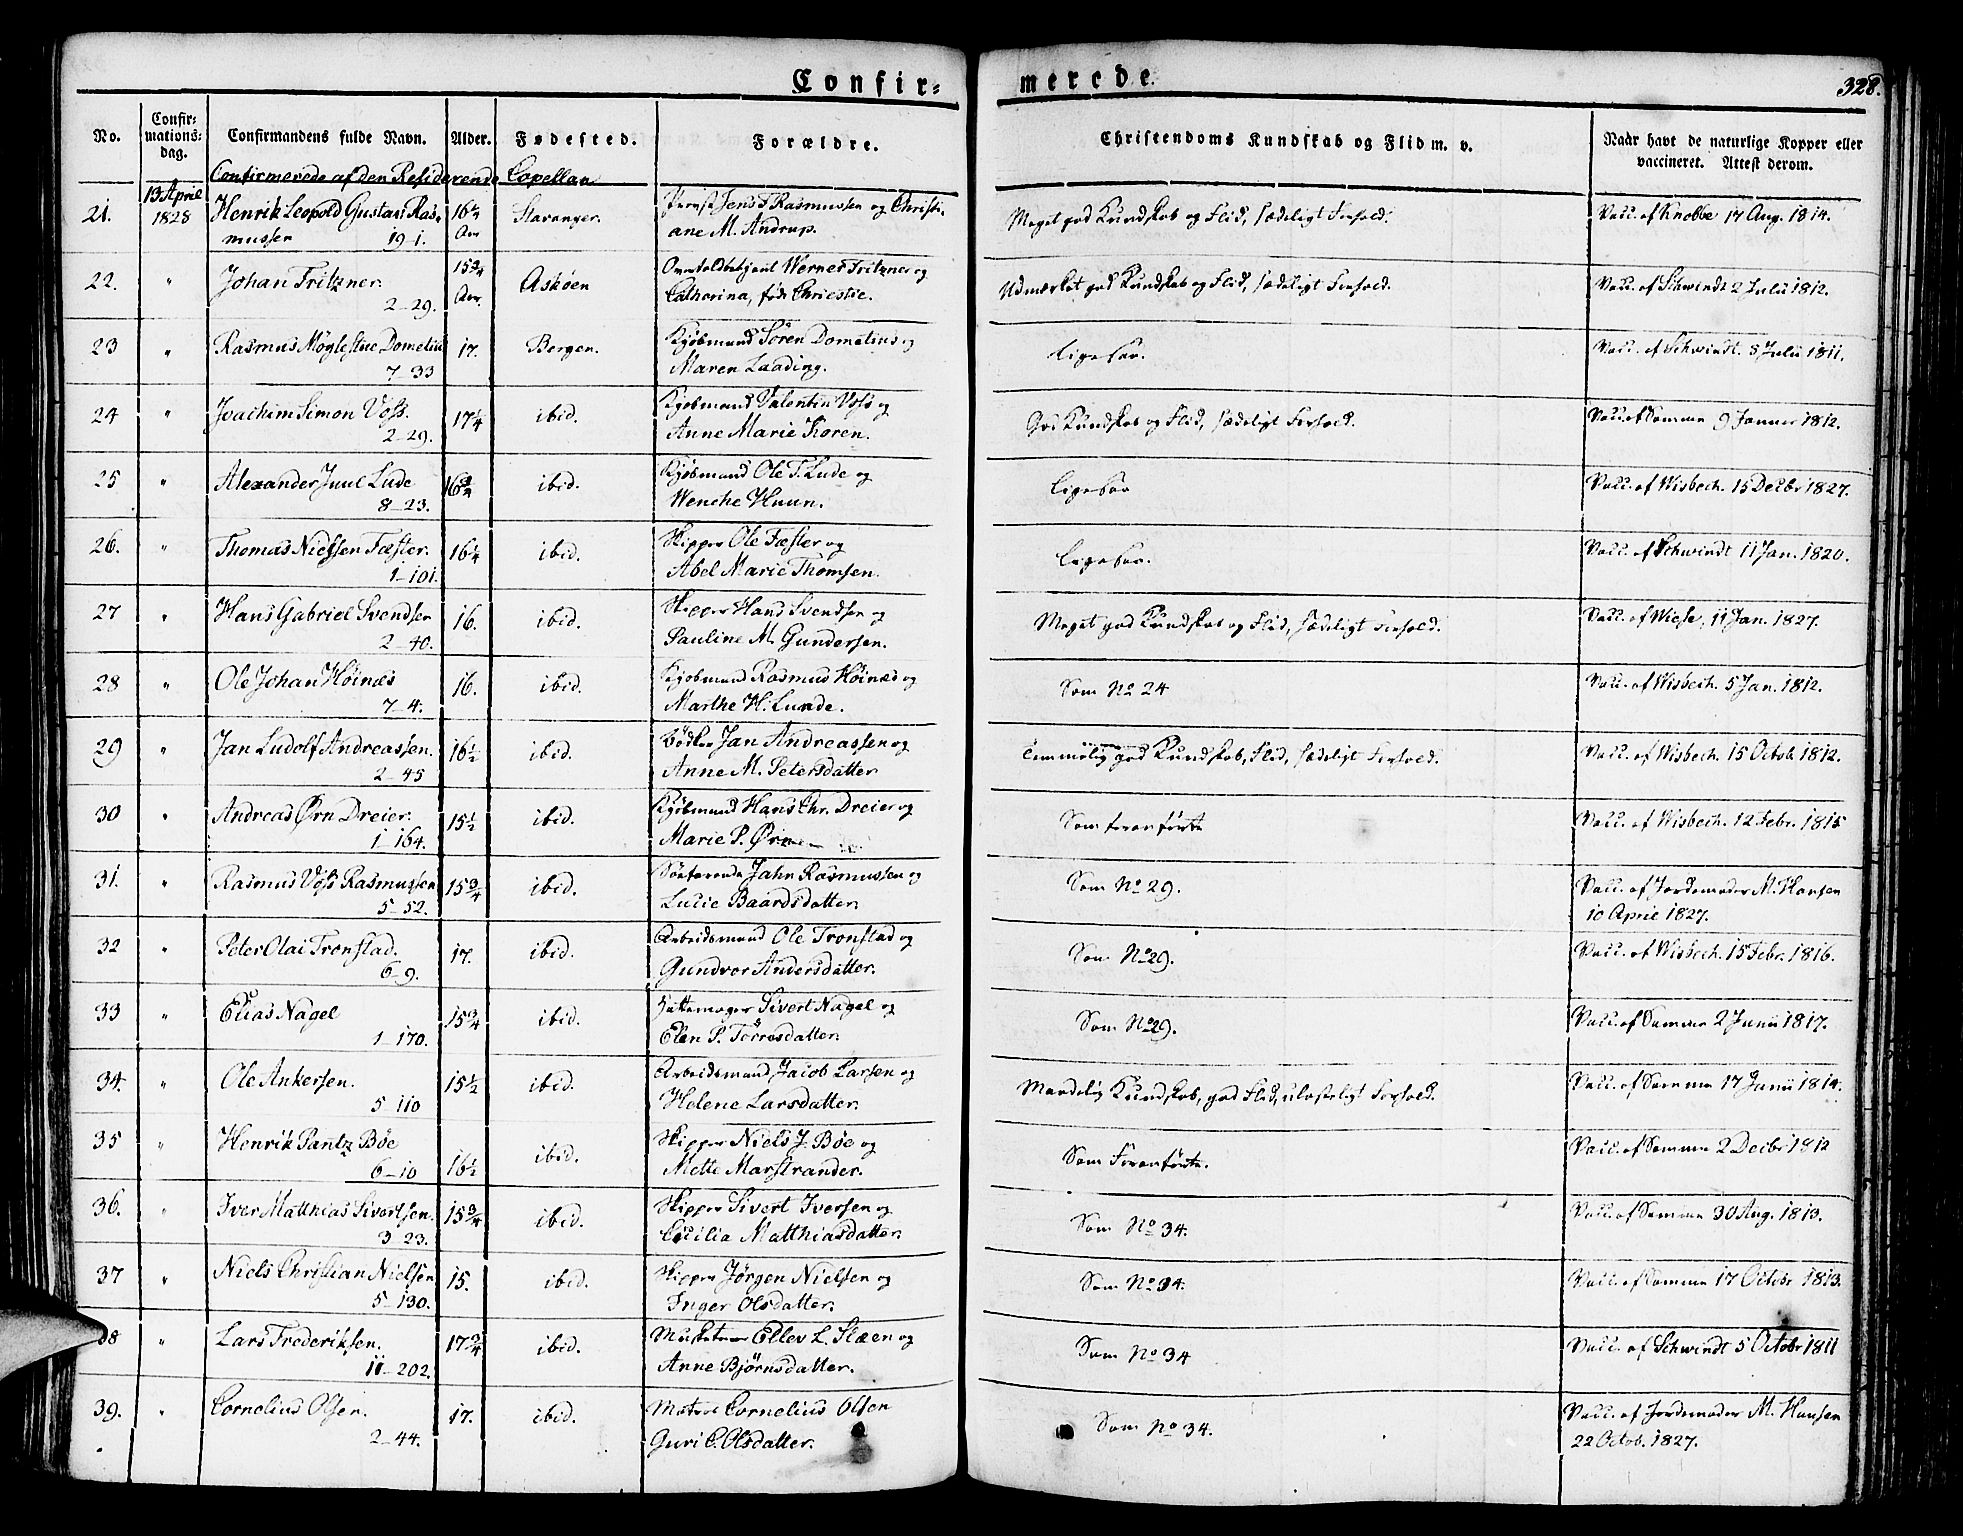 Confir=
merede.
328.
No.
Confir-
mations-
dag.
Confirmandens fulde Navn.
Alder.
Fødested.
Forældre.
Christendoms Kundskab og Flid m. v.
Naar havt de naturlige Kopper eller
vaccineret. Attest derom.
Confirmerede af den Residerende Capellan
21.
13 April
1828
Henrik Leopold Gustav Ras-
mussen 19-1.
16¼
Aar
Stavanger.
Jens Rasmussen og Christi-
ane M. Andrup.
Meget god Kundskab og Flid, sædeligt Forhold.
Vacc. af Knobbe 17 Aug. 1814.
22.
"
Johan Fritzner.
2-29.
15¾
Aar.
Askøen
Werner Fritzner og
Catharina, født Chriestie.
Udmærket god Kundskab og Flid, sædeligt Forhold.
Vacc. af Schwindt 2 Julii 1812.
23
"
Rasmus Møglestue Domelius
7-33
17.
Bergen.
Kjøbmand Søren Domelius og
Maren Laading.
Ligesaa.
Vacc. af Schwindt. 5 Julii 1811.
24
"
Joachim Simon Voss.
2-29.
17¼
ibid.
Kjøbmand Valentin Voss og
Anne Marie Koren.
God Kundskab og Flid, sædeligt Forhold.
Vacc. af Samme 9 Januar 1812.
25
"
Alexander Juul Lude
8-23.
16¾
ibid.
Kjøbmand Ole T. Lude og
Wenche Huun.
Ligesaa
Vacc. af Wisbech. 15 Decbr 1827.
26.
"
Thomas Nielsen Fæster.
1-101.
16¼
ibid.
Skipper Ole Fæster og
Abel Marie Thomsen.
Ligesaa.
Vacc. af Schwindt 11 Jan. 1820.
27
"
Hans Gabriel Svendsen
2-40.
16.
ibid.
Skipper Hans Svendsen og
Pauline M. Gundersen.
Meget god Kundskab og Flid, sædeligt Forhold.
Vacc. af Wiese, 11 Jan. 1827.
28
"
Ole Johan Høinæs
7-4.
16.
ibid.
Kjøbmand Rasmus Høinæs og
Marthe H. Lunde.
Som No 24
Vacc. af Wisbech. 5 Jan. 1812.
29
"
Jan Ludolf Andreassen.
2-45
16½
ibid.
Bødker Jan Andreassen og
Anne M. Petersdatter
Temmelig god Kundskab, Flid, sædeligt Forhold.
Vacc. af Wisbech. 15 Octob 1812.
30
"
Andreas Ørn Dreier.
1-164.
15½
ibid.
Kjøbmand Hans Chr. Dreier og
Marie P. Ørn
Som foranførte
Vacc. af Wisbech. 12 Febr. 1815
31.
"
Rasmus Voss Rasmussen
5-52.
15¾
ibid.
Søefarende Jahn Rasmussen og
Lucie Baardsdatter.
Som No 29.
Vacc. af Jordemoder M. Hansen
10 April 1827.
32
"
Peter Olai Tronstad.
6-9.
17.
ibid.
Arbeidsmand Ole Tronstad og
Gundvor Andersdatter.
Som No 29.
Vacc. af Wisbech. 15 Febr. 1816.
33
"
Elias Nagel
1-170.
15¾
ibid.
Hattemager Sivert Nagel og
Elen P. Törresdatter.
Som No 29.
Vacc. af Samme 2 Junii 1817.
34.
"
Ole Ankersen.
5 110
15½
ibid.
Arbeidsmand Jacob Larsen og
Helene Larsdatter.
Maadelig Kundskab, god Flid, ulasteligt Forhold.
Vacc. af Samme 17 Junii 1814.
35
"
Henrik Pantz Böe
6-10
16½
ibid.
Skipper Niels J. Böe og
Mette Marstrander.
Som Foranførte.
Vacc. af Samme 2 Decbr 1812
36.
"
Iver Matthias Sivertsen.
3 23.
15¾
ibid.
Skipper Sivert Iversen og
Cicilia Matthiasdatter.
Som No 34.
Vacc. af Samme 30 Aug. 1813.
37
"
Niels Christian Nielsen
5-130.
15.
ibid.
Skipper Jørgen Nielsen og
Inger Olsdatter.
Som No 34.
Vacc. af Samme 17 Octobr 1813.
38
"
Lars Frederiksen.
11-202.
17¾
ibid.
Ellev L. Slæen og
Anne Bjørnsdatter.
Som No 34
Vacc. af Schwindt 5 Octobr 1811
39.
"
Cornelius Olsen.
2-44.
17.
ibid.
Matros Cornelius Olsen
Guri C. Olsdatter.
Som No 34.
Vacc. af Jordemoder M. Hansen
22 Octob. 1827.